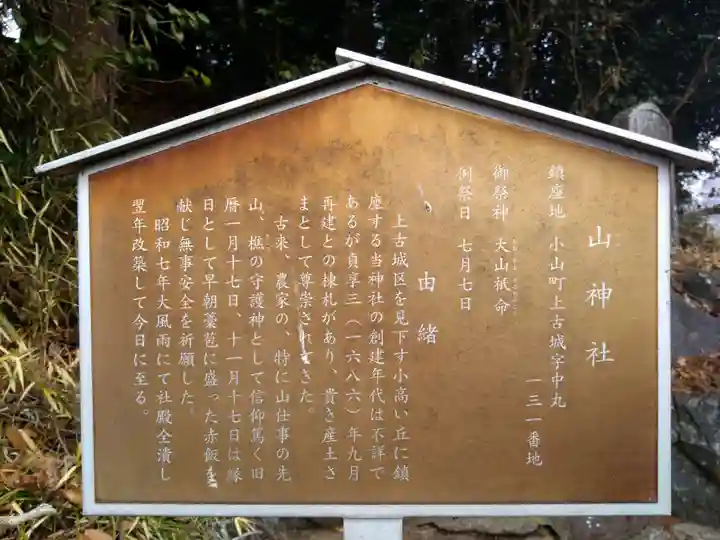 山神社
鎮座地　小山町上古城字中丸
一三一番地
御祭神　大山祇命
例祭日　七月七日
由緒
上古城区を見下す小高い丘に鎮
座する当神社の創建年代は不詳で
あるが貞享三（一六八六）年九月
再建との棟札があり、貴き産土さ
まとして尊崇されてきた。
古来、農家の、特に山仕事の先
山、樵の守護神として信仰篤く旧
暦一月十七日、十一月十七日は縁
日として早朝藁苞に盛った赤飯を
献じ無事安全を祈願した。
昭和七年大風雨にて社殿全潰し
翌年改築して今日に至る。